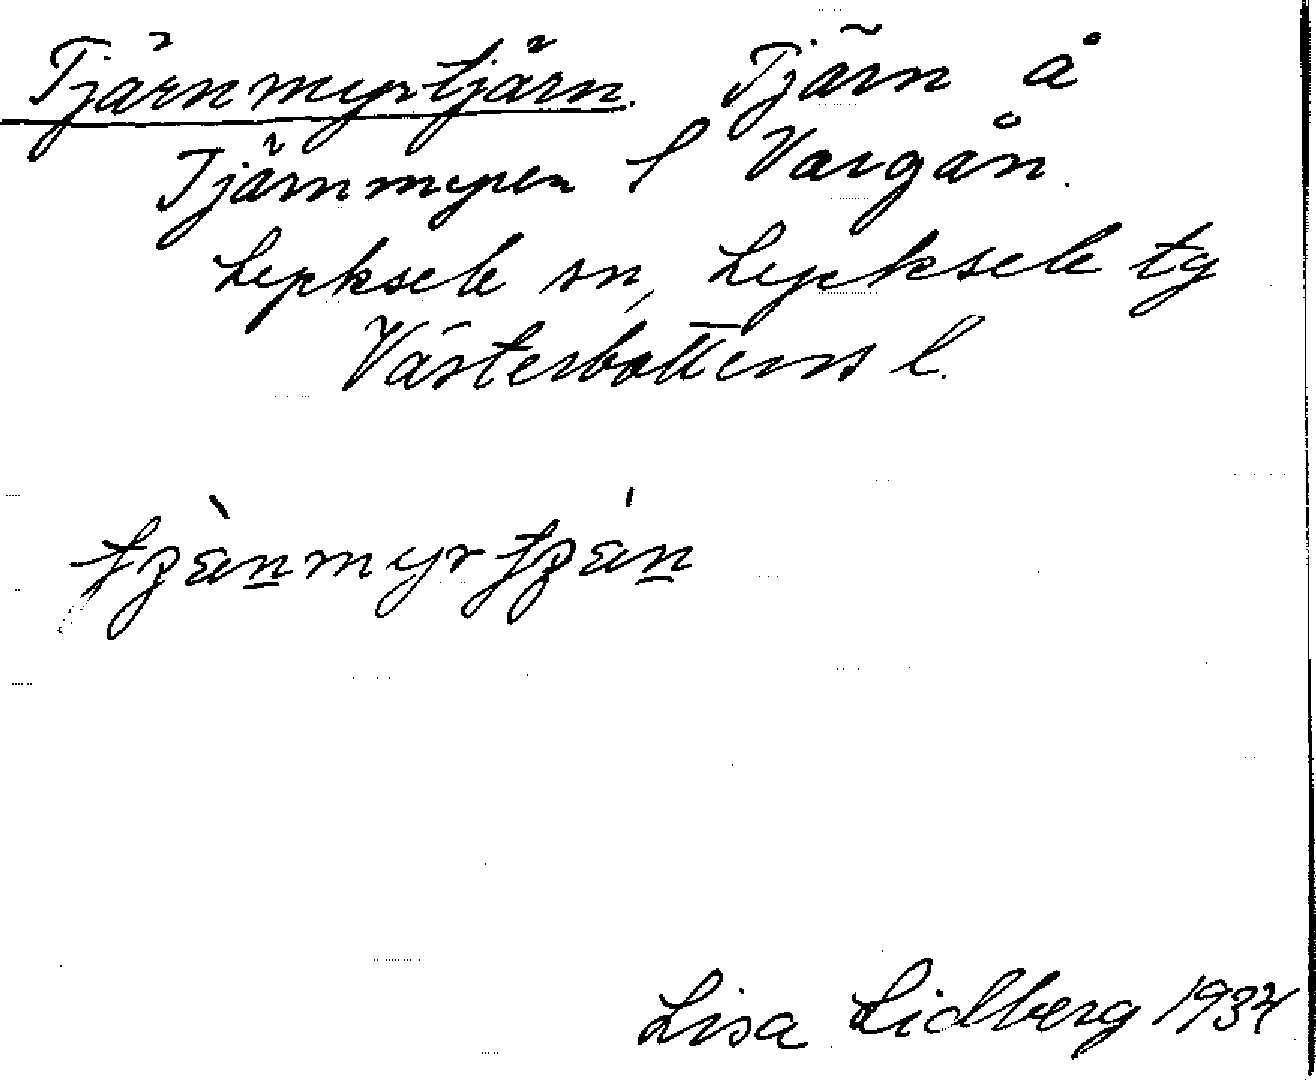 Tjärnmyrtjärn. Tjärn å
Tjärnmyren l Vargån.
Lycksele sn, Lycksele tg
Västerbottens l.
Lisa Lidberg 1934